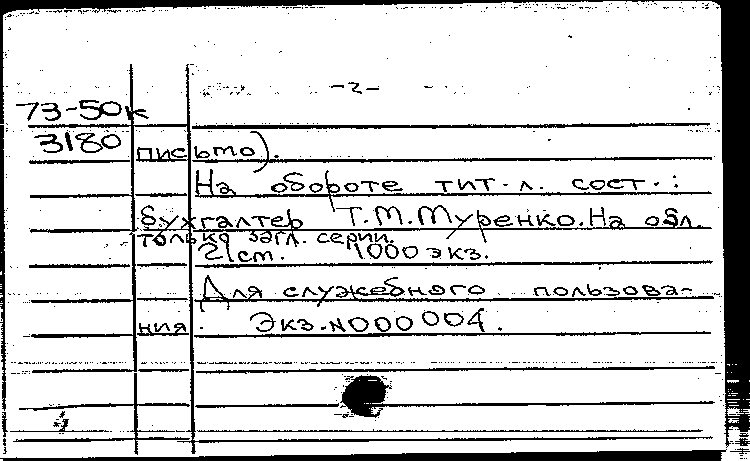 -2-
73-50к
3180 письмо).
На обороте тит. л. сост.:
бухгалтер Т.М.Муренко. На обл.
только загл. серии.
21 см. 1000 экз.
Для служебного пользова-
ния. Экз. N000004.